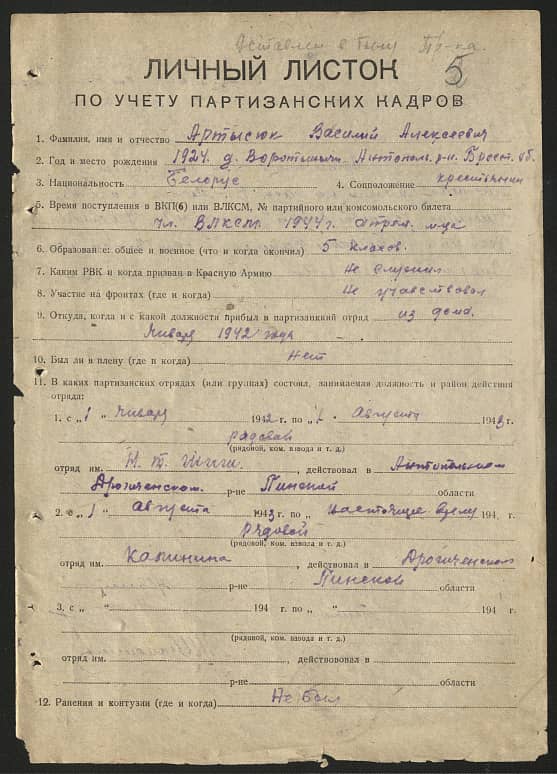 Оставлен в тылу
5
ЛИЧНЫЙ ЛИСТОК
ПО УЧЕТУ ПАРТИЗАНСКИХ КАДРОВ
1. Фамилия, имя и отчество Артысюк Василий Алексеевич
2. Год и место рождения 1924. д. Воротыничи Антополь. р-н Брест. об.
3. Национальность Белорус 4. Соцположение крестьянин
5. Время поступления в ВКП(б) или ВЛКСМ, № партийного или комсомольского билета
чл. ВЛКСМ 1944 г. м-ца
6. Образование: общее и военное (что и когда окончил) 5 классов.
7. Каким РВК и когда призван в Красную Армию Не служил
8. Участие на фронтах (где и когда) Не участвовал
9. Откуда, когда и с какой должности прибыл в партизанкий отряд из дома.
Января 1942 года
10. Был ли в плену (где и когда) Нет
11. В каких партизанских отрядах (или группах) состоял, занимаемая должность и район действия
отряда:
1. с „1 " Января 1942 г. по „1 " Августа 1943 г.
рядовой
(рядовой, ком. взвода и т. д.)
отряд им. , действовал в Антопольском
Дрогиченском р-не Пинской области
2. с „1 " Августа 1943 г. по „ настоящие время 194 г.
рядовой
(рядовой, ком. взвода и т. д.)
отряд им. Калинина , действовал в Дрогиченском
р-не Пинской области
3. с „ " 194 г. по „ " 194 г.
(рядовой, ком. взвода и т. д.)
отряд им. , действововал в
р-не области
12. Ранения и контузии (где и когда) Не был